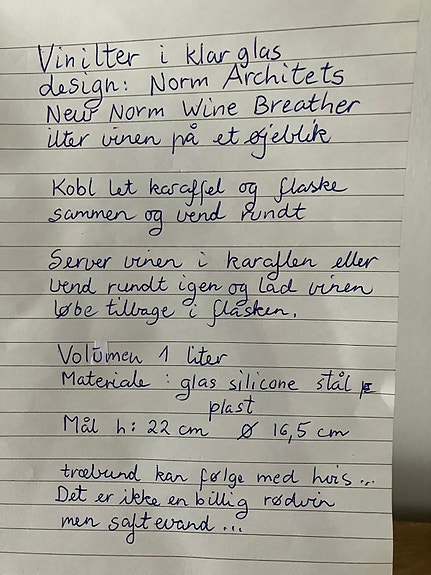 Vinilter i klar glas
design: Norm Architets
New Norm Wine Breather
ilter vinen på et øjeblik
Kobl let karaffel og flaske
sammen og vend rundt
Server vinen i karaflen eller
vend rundt igen og lad vinen
løbe tilbage i flasken.
Volumen 1 liter
Materiale : glas silicone stål
plast
Mål h: 22 cm Ø 16,5 cm
træbund kan følge med hvis...
Det er ikke en billig rødvin
men saftevand...